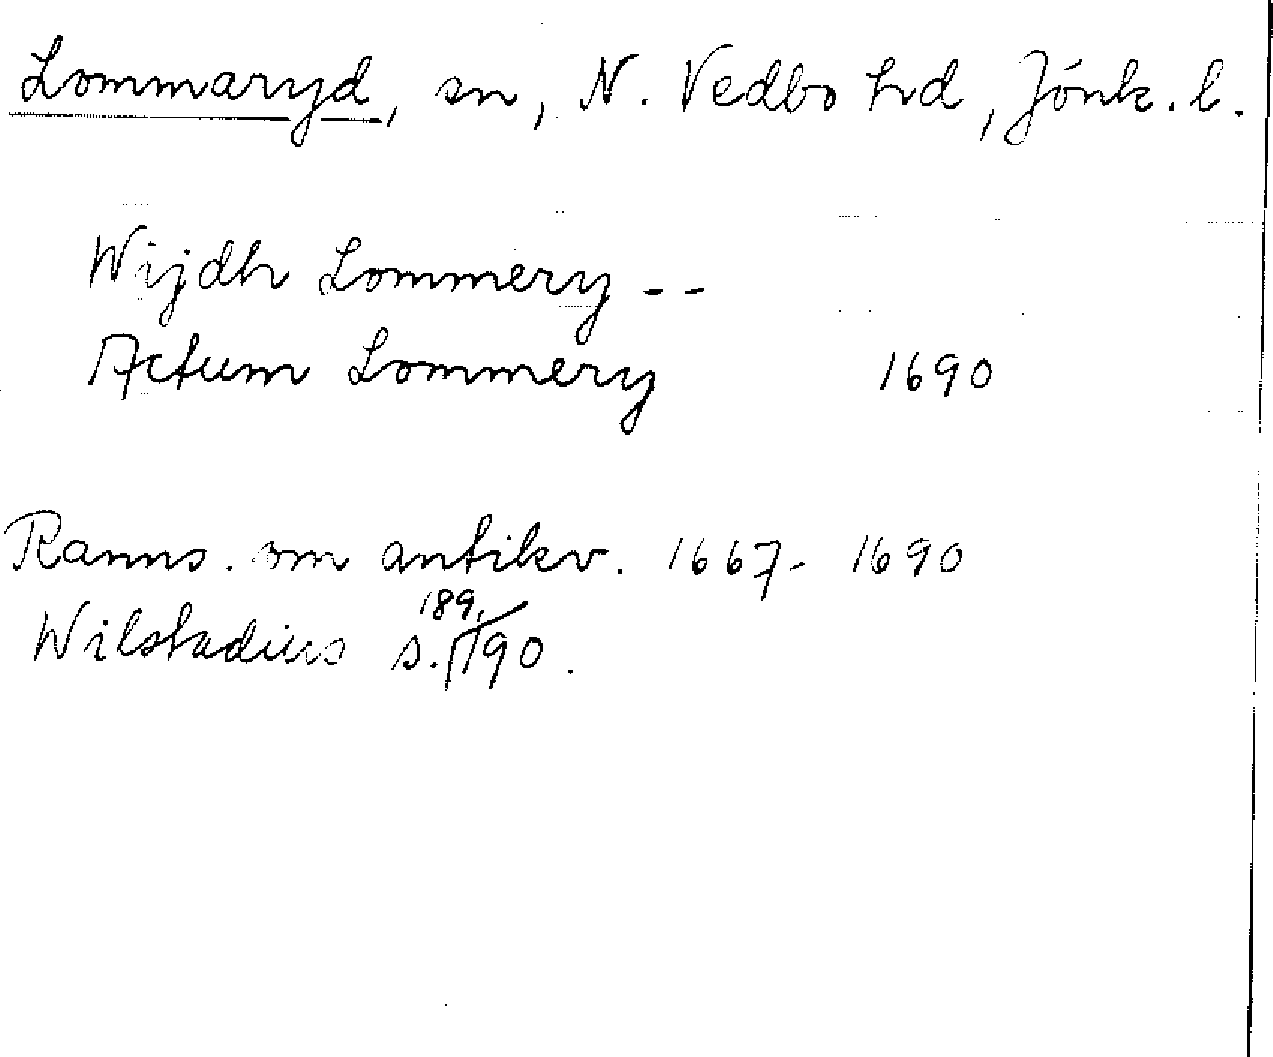 Lommaryd, sn, N. Vedbo hd, Jönk. l.
Wijdh Lommery --
Actum Lommery 1690
Ranns. om antikv. 1667-1690
Wilstadius s. 189, 190.